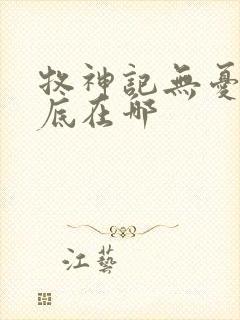 牧神記無憂
底在哪
江藝